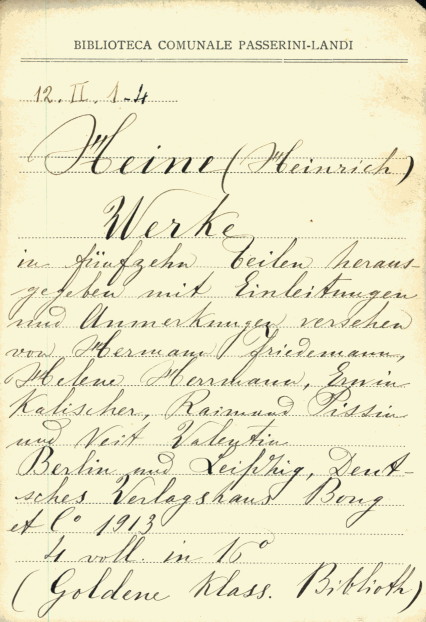 BIBLIOTECA COMUNALE PASSERINI-LANDI
12. II. 1-4
Heine (Heinrich)
Werke
in fünfzehn Teilen heraus-
gegeben mit Einleitungen
und Anmerkungen versehen
von Hermann Friedemann,
Helene Herrmann, Erwin
Kalischer, Raimund Pissin
und Veit Valentin
Berlin und Leipzig, Deut-
sches Verlagshaus Bong
et Cº 1913
4 voll. in 16º
(Goldene Klass. Biblioth)